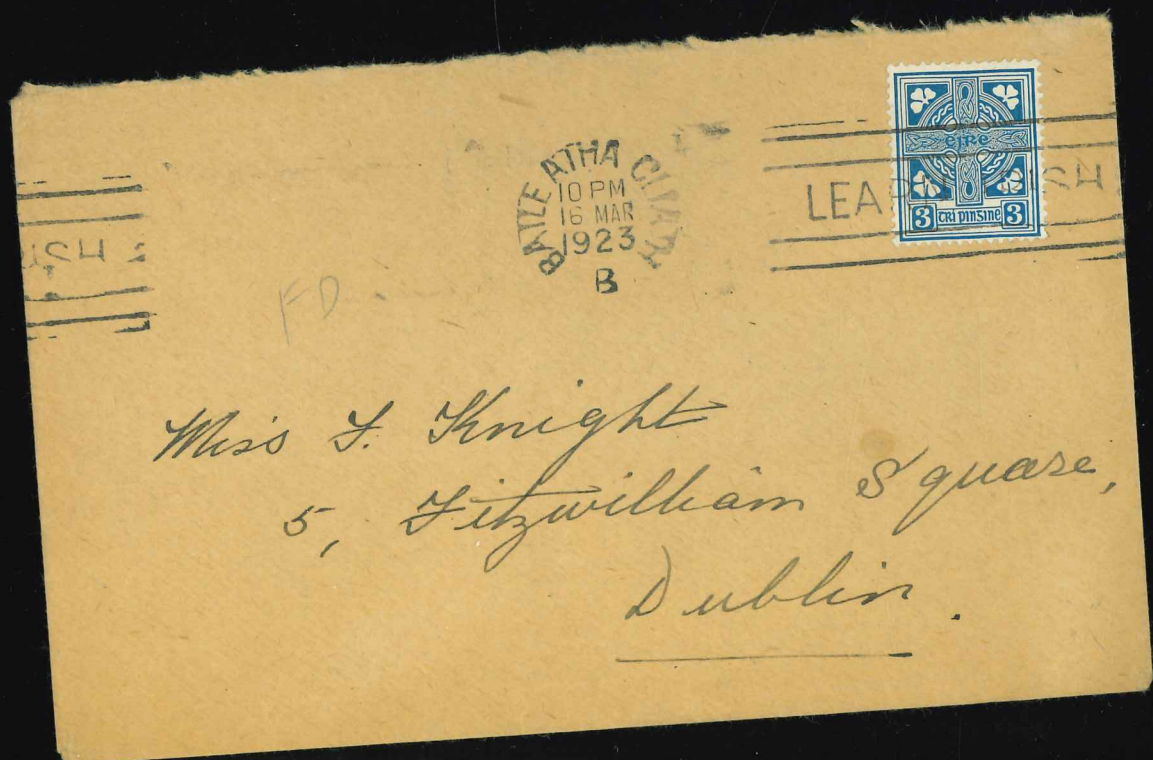 BAILE ATHA CLIATH
10 PM
16 MAR
1923
B
LEARN ISH
éire
3 trí pinsine 3
ISH
FD
Miss F. Knight
5, Fitzwilliam Square,
Dublin.